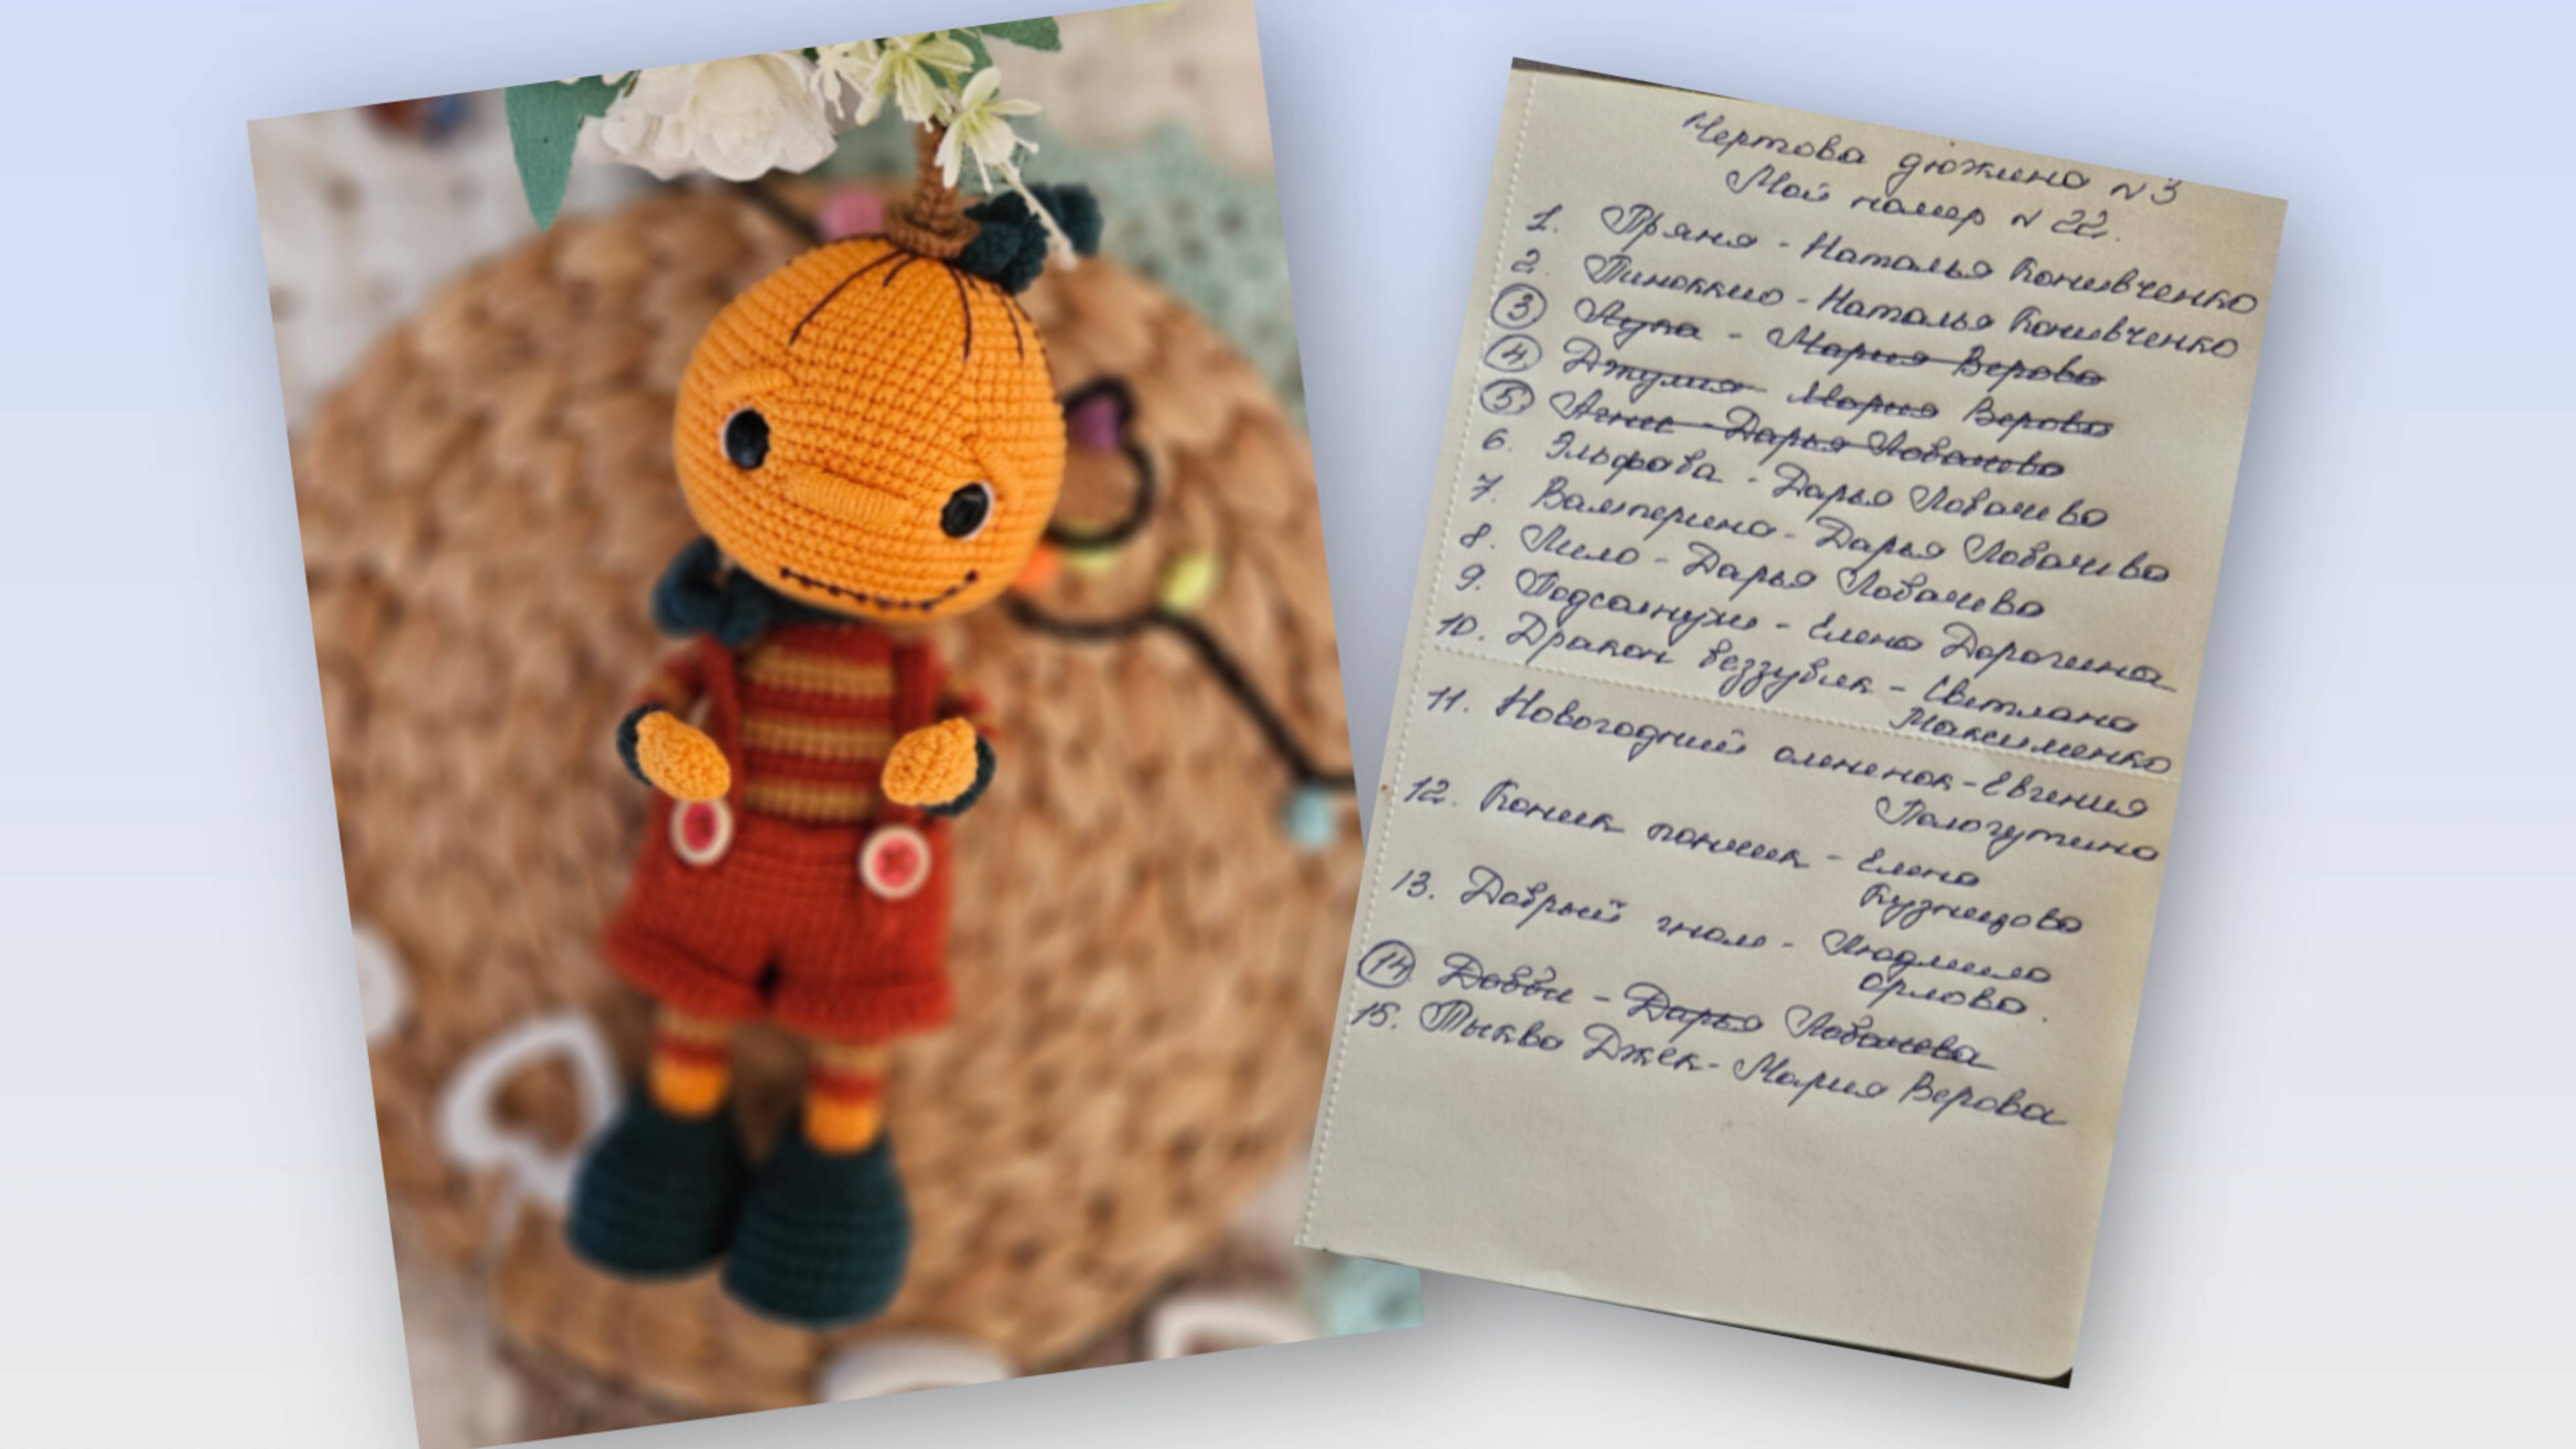 Чертова дюжина N3
Мой номер N 22.
1. Пряня - Наталья Конивченко
2. Пиноккио - Наталья Конивченко
3 Лупа - Мария Верова
4. Джулия - Мария Верова
5 Агнес - Дарья Лобачева
6. Эльфоба - Дарья Лобачева
7. Вамперина - Дарья Лобачева
8. Лило - Дарья Лобачева
9. Подсолнухи - Елена Дорогина
10. Дракон беззубик - Светлана
Максименко
11. Новогодний олененок - Евгения
Пологутина
12. Коник пончик - Елена
Кузнецова
13. Добрый гном - Людмила
Орлова.
14. Добби - Дарья Лобачева
15. Тыква Джек - Мария Верова